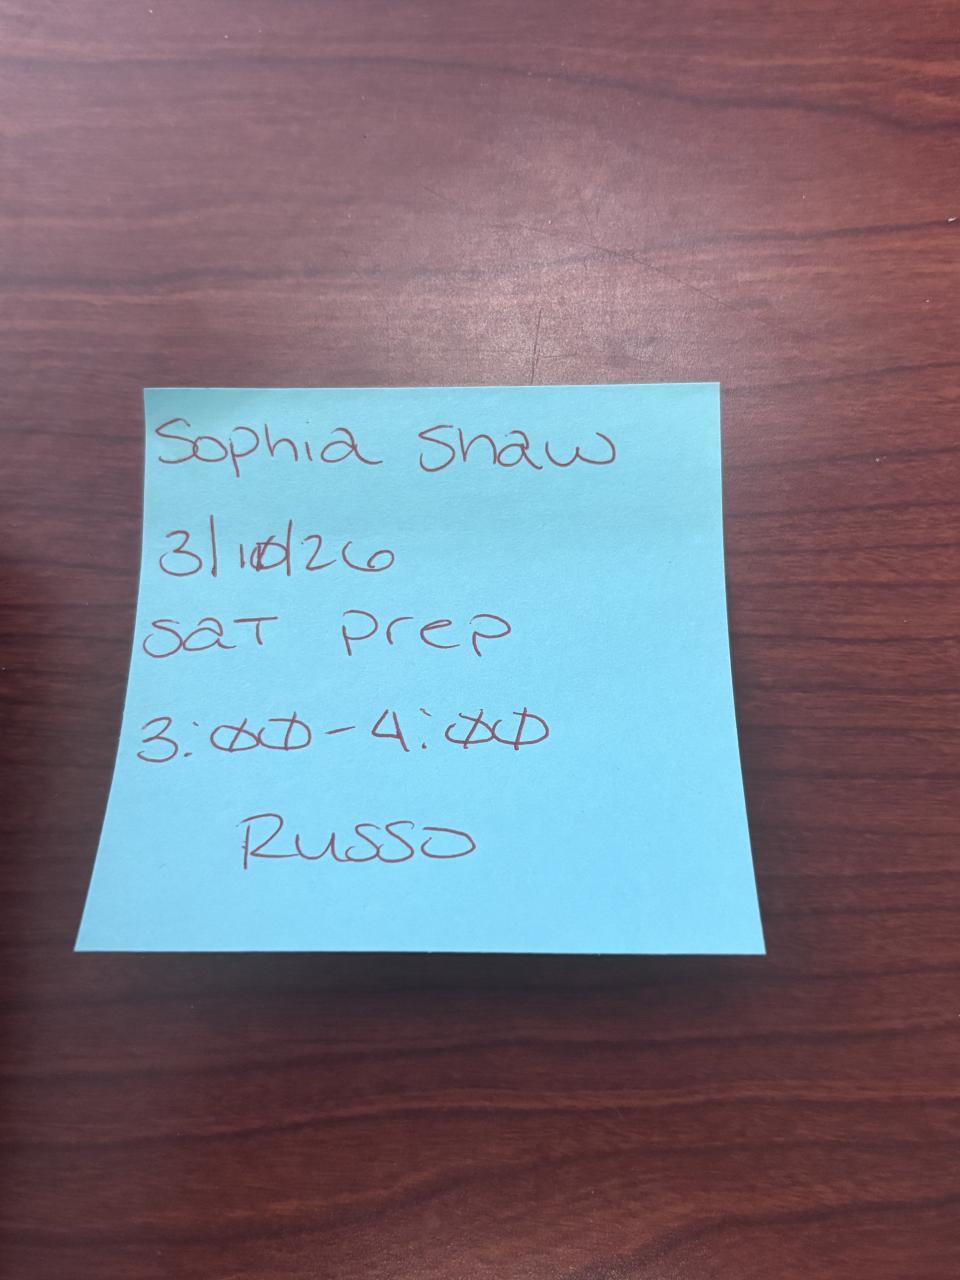 Sophia Shaw
3/10/26
SAT Prep
3:00-4:00
Russo